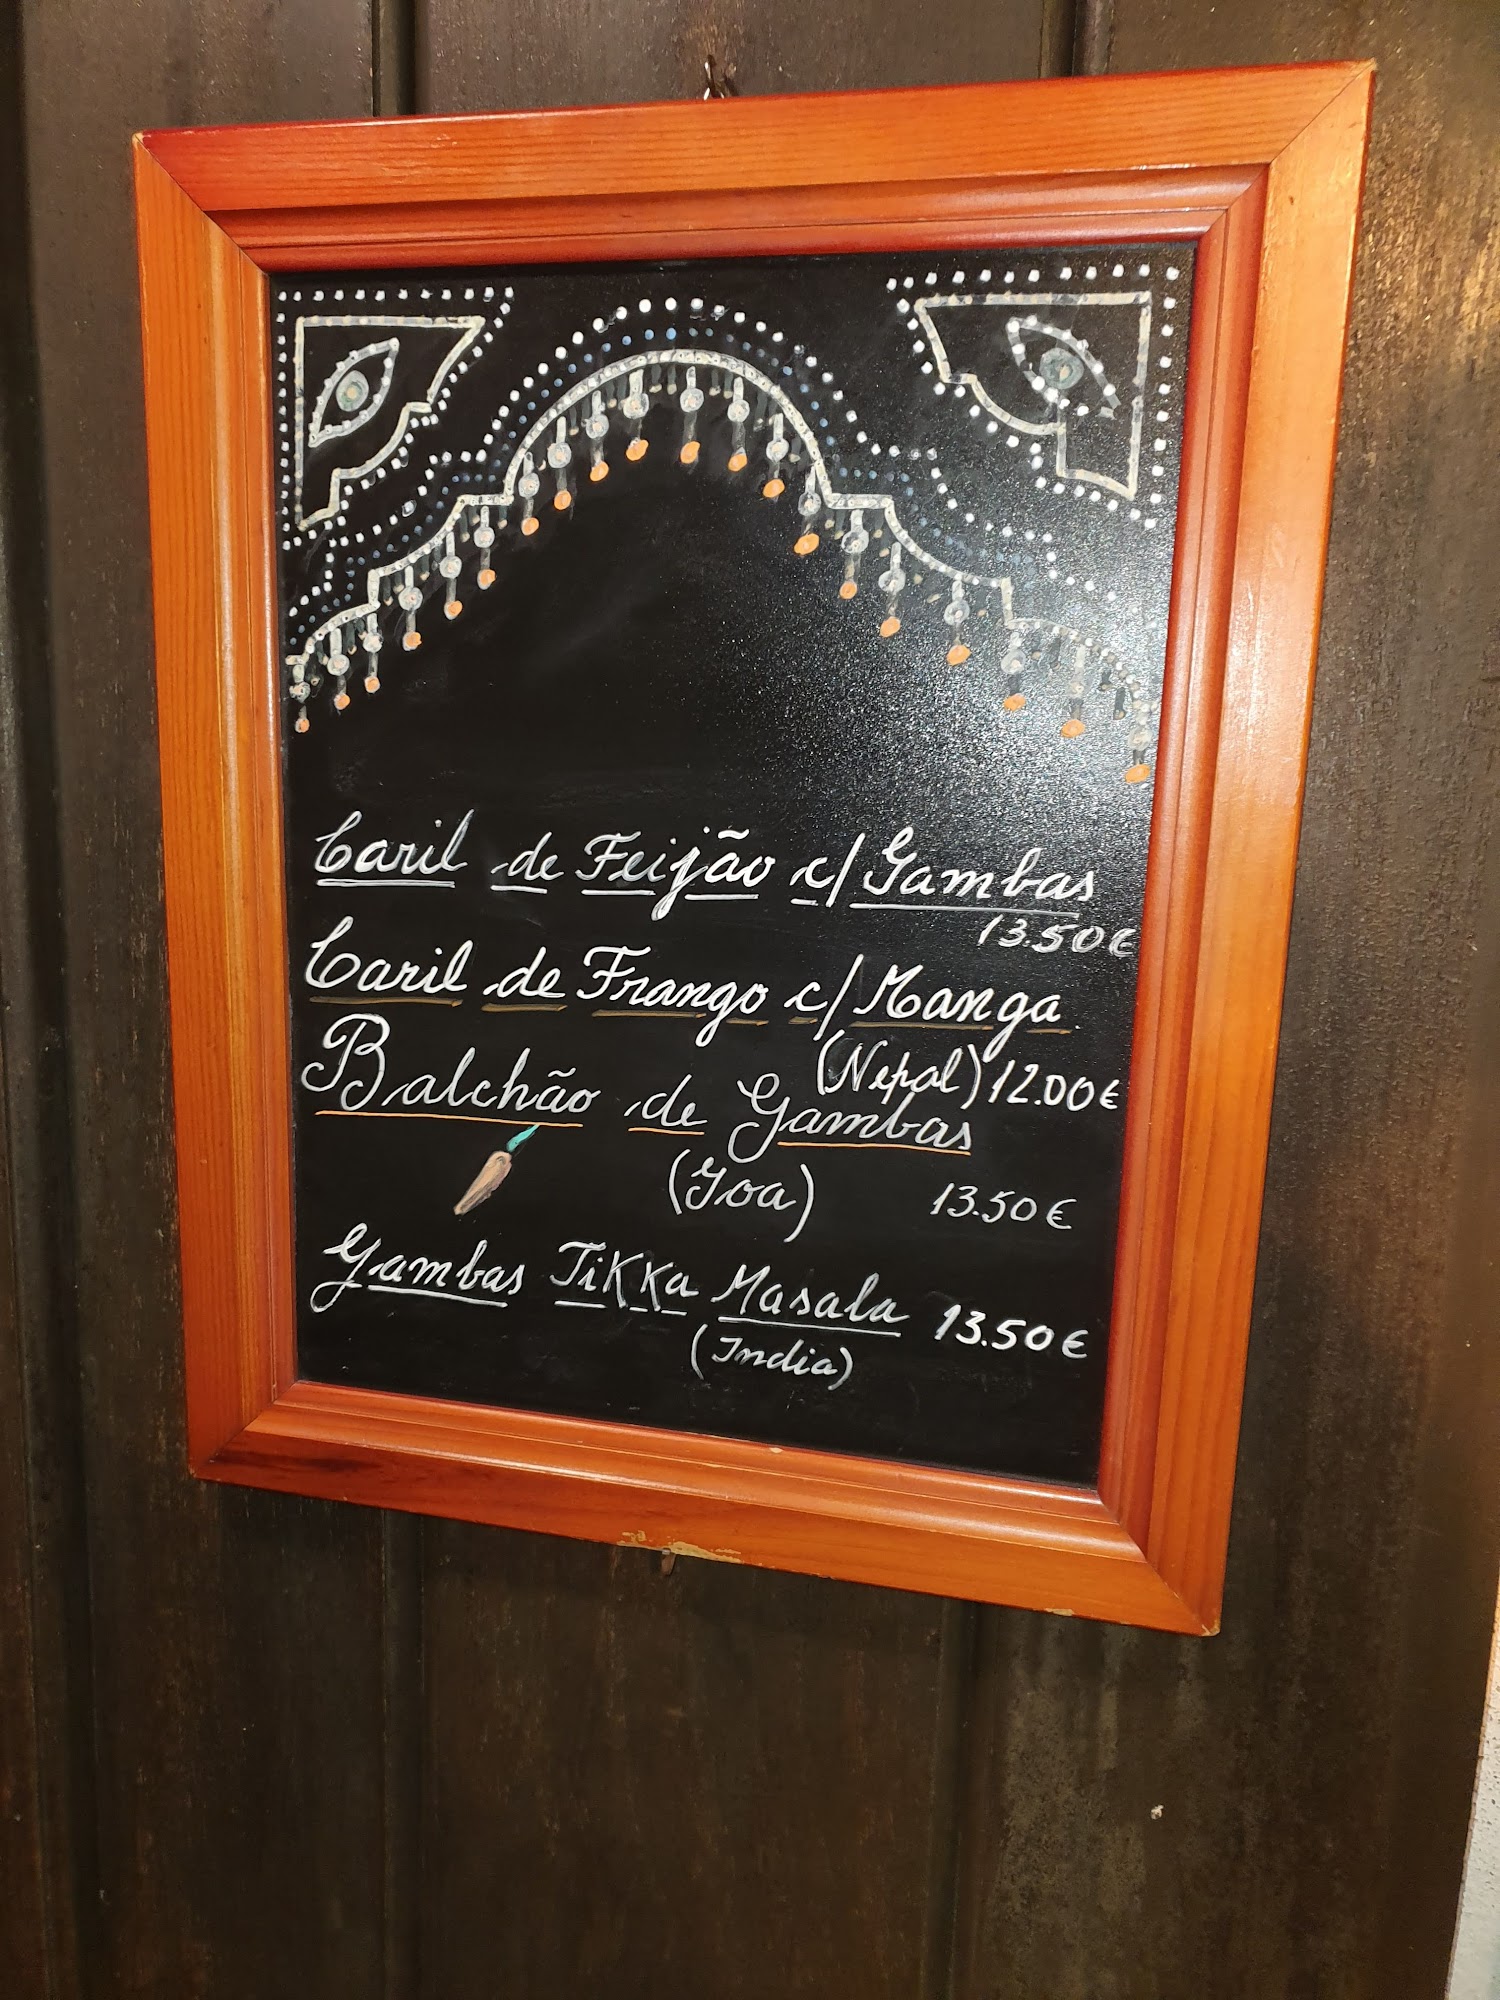 Caril de Feijão c/ Gambas
13.50€
Caril de Frango c/ Manga
(Nepal) 12.00€
Balchão de Gambas
(Goa) 13.50€
Gambas Tikka Masala 13.50€
(India)